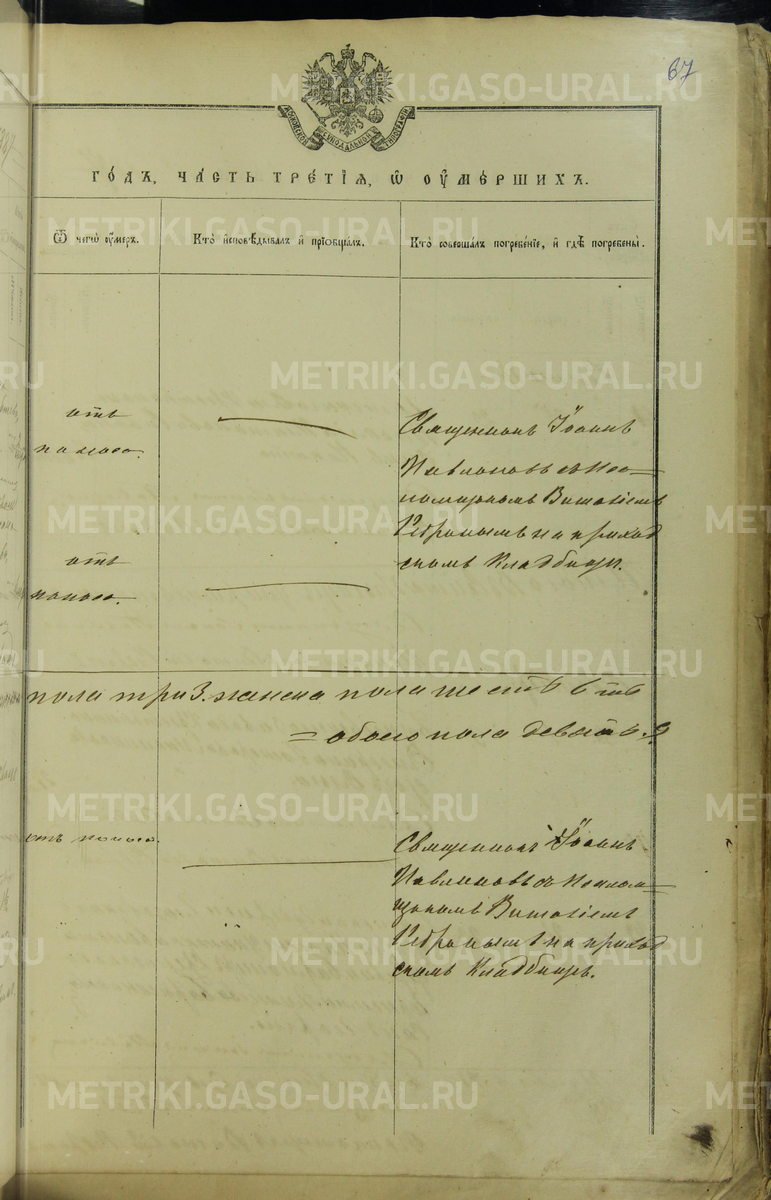 67
МОСКОВСКОЙ СѴНОДАЛЬНОЙ ТИПОГРАФІИ
ГО́ДЪ, ЧА́СТЬ ТРЕ́ТІѦ, Ѡ҆ ОУ҆МЕ́РШИХЪ.
Ѿ чегѡ̀ оу҆́меръ.
Кто̀ и҆сповѣ́дывалъ и҆ прїѡбща́лъ.
Кто̀ соверша́лъ погребе́нїе, и҆ гдѣ̀ погребены̀.
отъ
поноса.
Священникъ Іоаннъ
Павлиновъ съ Пса-
ломщикомъ Виталіемъ
на приход
скомъ Кладбищѣ.
отъ
поноса.
пола три 3. женска пола шесть 6 ть
= обоего пола девять. 9
отъ поноса.
Священникъ Іоаннъ
Павлиновъ съ Псалом-
щикомъ Виталіемъ
на приход
скомъ Кладбищѣ.
METRIKI.GASO-URAL.RU